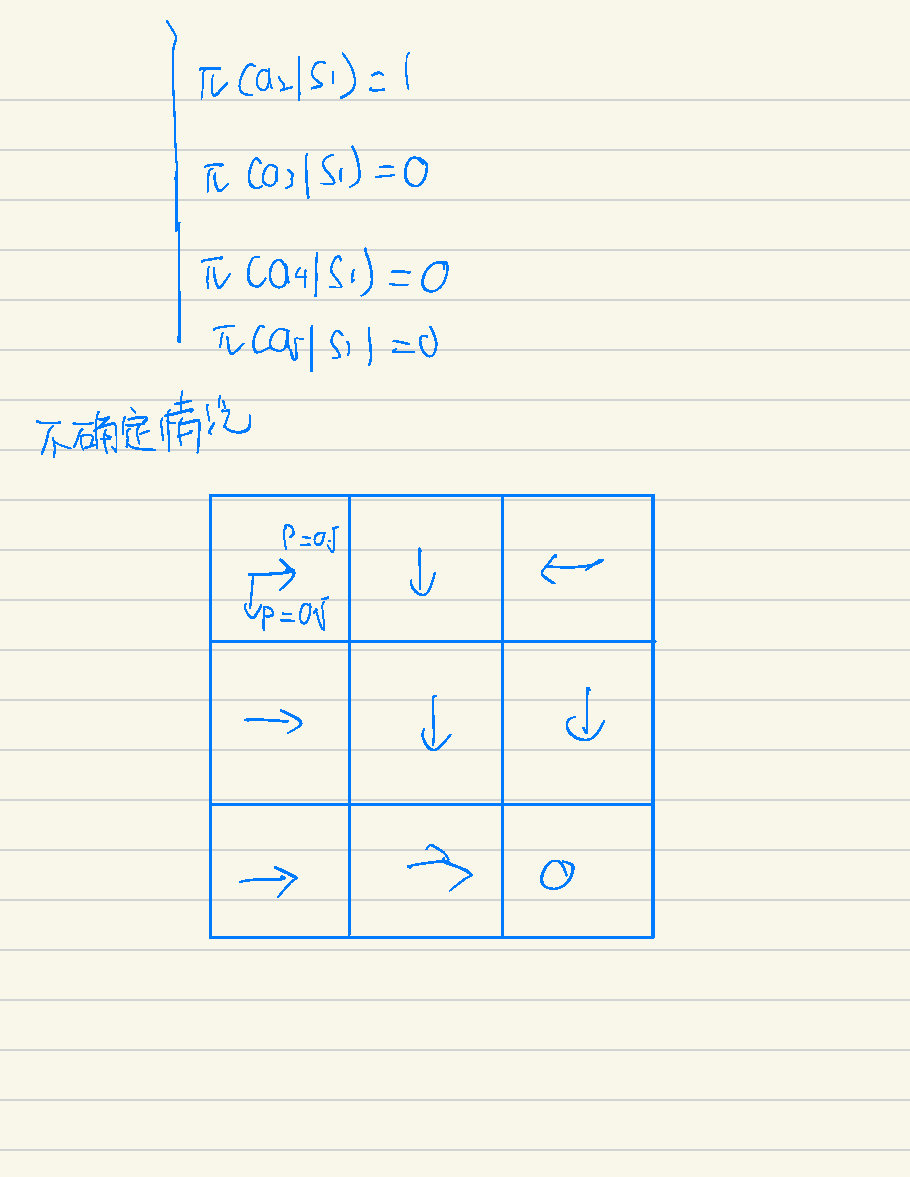 π(a₂|S₁)=1
π(a₃|S₁)=0
π(a₄|S₁)=0
π(a₅|S₁)=0
不确定情况
P=0.5
P=0.5